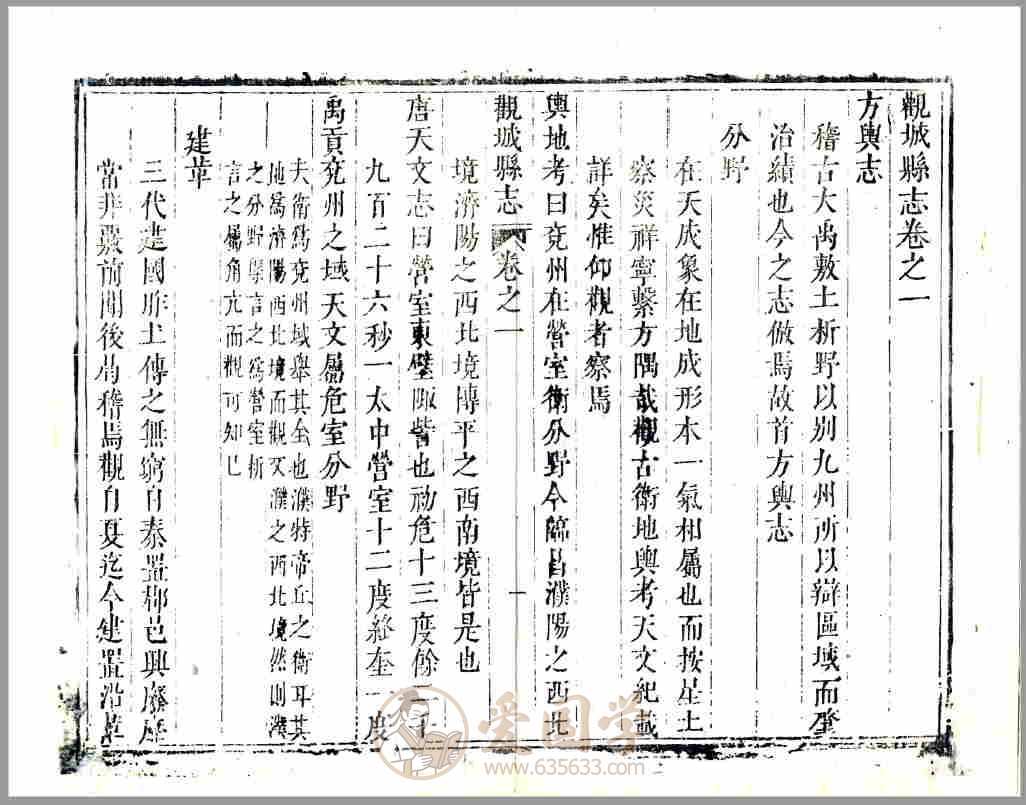 觀城縣志卷之一
方輿志
稽古大禹敷土析野以别九州所以辯區域而肇
治績也今之志倣焉故首方輿志
分野
在天成象在地成形本一氣相屬也而按星土
察災祥寧繫方隅哉觀古衛地輿考天文紀載
詳矣惟仰觀者察焉
輿地考曰兗州在營室衛分野今臨邑濮陽之西北
觀城縣志 卷之一 一
境濟陽之西北境博平之西南境皆是也
唐天文志曰營室東壁娵訾也初危十三度餘二千
九百二十六秒一太中營室十二度終奎一度
禹貢兗州之域天文屬危室分野
夫衛爲兗州域舉其全也濮特帝丘之衛耳其
地爲濟陽西北境而觀又濮之西北境然則濮
之分野槩言之爲營室析
言之屬角亢而觀可知已
建革
三代建國胙土傳之無窮自秦置郡邑興廢歷
常非覈前聞後曷稽焉觀自夏迄今建置沿革
爱国学
www.635633.com